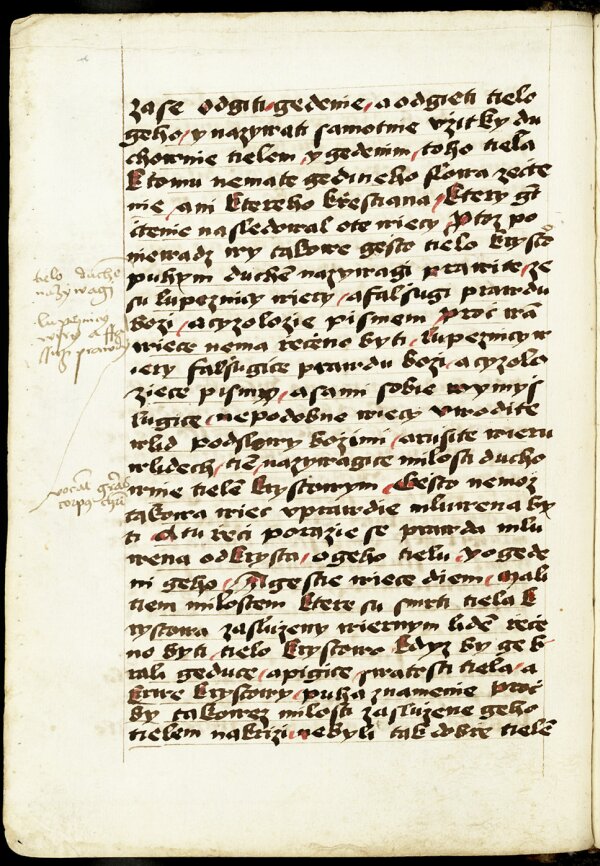 zase odgiti gedenie, a odgieti tielo
geho, y nazywati samotnie vzitky du
chownie tielem, y gedenim, toho tiela
Ktomu nemate gedineho slowa zečte
nie, ani Ktereho Křestiana, Ktery gt
čtenie nasledowal ote wiecy, Ptoz po
niewadz wy takowe gesto tielo Krysto
puhym duchem nazywagi prawite, ze
su lupeznicy wiecy, a falssugi prawdu
bozi, a cyzolozie pismem, proč tato
wiece nema rečeno byti, lupeznicy w
iery falssugice prawdu bozi, a cyzolo
ziece pismo, a sami sobie wymys
lugice, nepodobne wiecy vwodite
wlid podslowy bozimi, a rusite wieru
wlidech, tiem nazywagice milosti ducho
wnie tielem Krystowym, Gesto nemoz
takowa wiec vprawdie mluwena by
ti A tu řeči porazie se prawda mlu
wena od Krysta, o geho tielu, y o gede
ni geho, A gestie wiece diem, Mali
tiem milostem Ktere su smrti tiela K
rystowa zasluzeny wiernym lidem rece
no byti, tielo Krystowo Kdyz by ge b
rali geduce, a pigice, swatosti tiela, a
Krwe Krystowy, puha znamenie proč
by takowez milosti zasluzene geho
tielem na Krizi, nebyli tak dobre tielem
tielo duchem
nazywagi
lupeznicy
wiery a ffa
ssugi prawdu
vocat
corpus